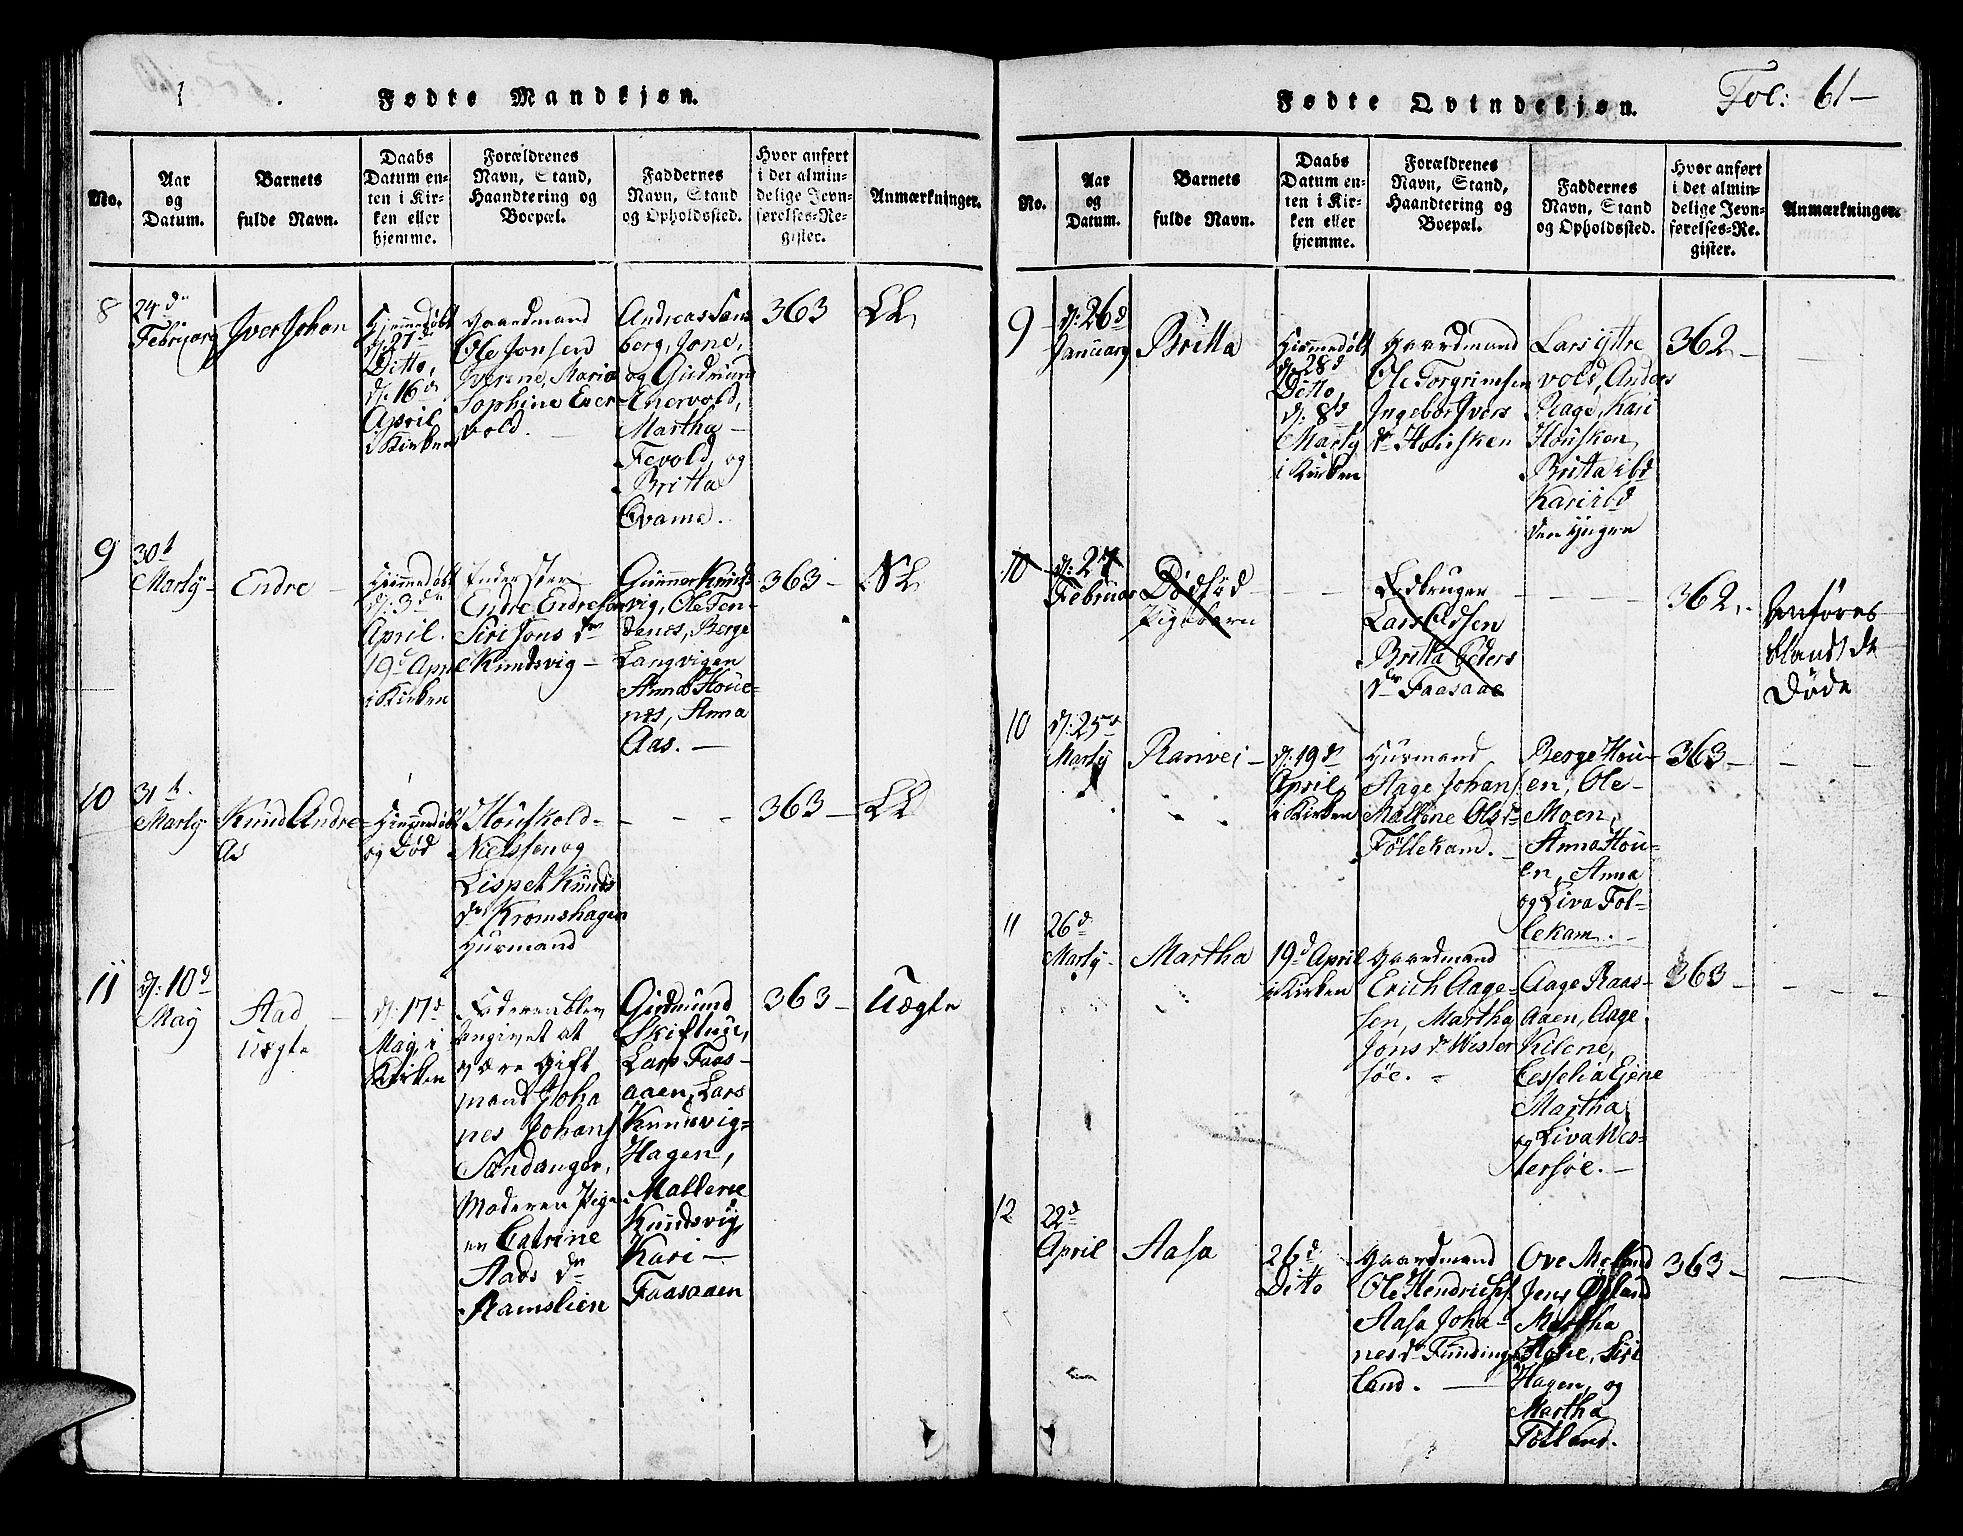 1
Fødte Mandkjøn.
No.
Aar
og
Datum.
Barnets
fulde Navn.
Daabs
Datum en-
ten i Kir-
ken eller
hjemme.
Forældrenes
Navn, Stand,
Haandtering og
Boepæl.
Faddernes
Navn, Stand
og Opholdssted.
Hvor anført
i det almin-
delige Jevn-
førelses-Re-
gister.
Anmærkninger.
8
24de
Februarj
Iver Johan
Hjemmedøbt
d: 27d
Ditto,
d: 16d
April
i Kirken
Gaardmand
Ole Jonsen
Iverine, Maria
Sophine Ener
vold.
Andreas Sans
berg, Jone,
og Gudmund
Enervold,
Martha
Fevold, og
Britta
Qvame.
363
9
30t
Martj
Endre
Hjemmedøbt
d: 3de
April.
19d Apr
i Kirken
Endre Endresen
Siri Jons dr
Knudsvig
Gunner Knuds
vig, Ole Ten-
danes, Berge
Langvigen
Anna Houe-
nes, Anna
Aas.
363
10
31t
Martj
Knud Andre
as
Hjemmedøbt
og Død
Houskold
Nielssen og
Lispet Knuds
dr Kromshagen
Huusmand
363
11
d: 10d
May
Aad
Uægte
d: 17d
May i
Kirken
Faderen blev
angivet at
være Gift
mand Joha
nes Johans
Sandanger,
Moderen Pigen
en Catrine
Aads dr
Ramslien
Gudmund
Skiftuge,
Lars Faas-
aaen, Lars
Knudsvig-
Hagen,
Mallene
Knudsvig
Kari
Faasaaen
363
Uægte
Fødte Qvindekjøn.
Fol: 61
No.
Aar
og
Datum.
Barnets
fulde Navn.
Daabs
Datum en-
ten i Kir-
ken eller
hjemme.
Forældrenes
Navn, Stand,
Haandtering og
Boepæl.
Faddernes
Navn, Stand
og Opholdssted.
Hvor anført
i det almin-
delige Jevn-
førelses-Re-
gister.
Anmærkninger.
9
d: 26d
Januarj
Britta
Hjemmedøbt
d: 28d
Ditto,
d: 8d
Martj
i Kirken
Gaardmand
Ole Torgrimsen
Ingebor Ivers
dr Housken
Lars Yttre
vold, Anders
Rage, Kari
Housken
Britta ibd
Kari ibd
den Yngre
362
10
d: 27
Februar
Dødfød
Pigebarn
Ledbruger
Lars Edsen
Britta Peders
dr Faasaae
362
Anføres
blandt de
Døde
10
d: 25d
Martj
Ranvei
d: 19d
April
i Kirken
Huusmand
Aage Johans
Mallene Ols dr
Føllekam.
Berge Hou-
en, Ole
Moen,
Anna Hou-
en, Anna
og Liva Føl-
lekam.
363
11
26d
Martj
Martha
19d April
i Kirken
Gaardmand
Erich Aage-
sen, Martha
Jons dr Wester
søe.
Aage Raas-
aaen, Aage
Kilene,
Cesselia Eiene
Martha
og Liva Wes-
tersøe.
363
12
22d
April
Aasa
26d
Ditto
Gaardmand
Ole Hendrichs
Aasa Joha-
nes dr Funding-
land.
Ove Meland
Jens Østand
Martha
Hagen, og
Martha
Totland.
363